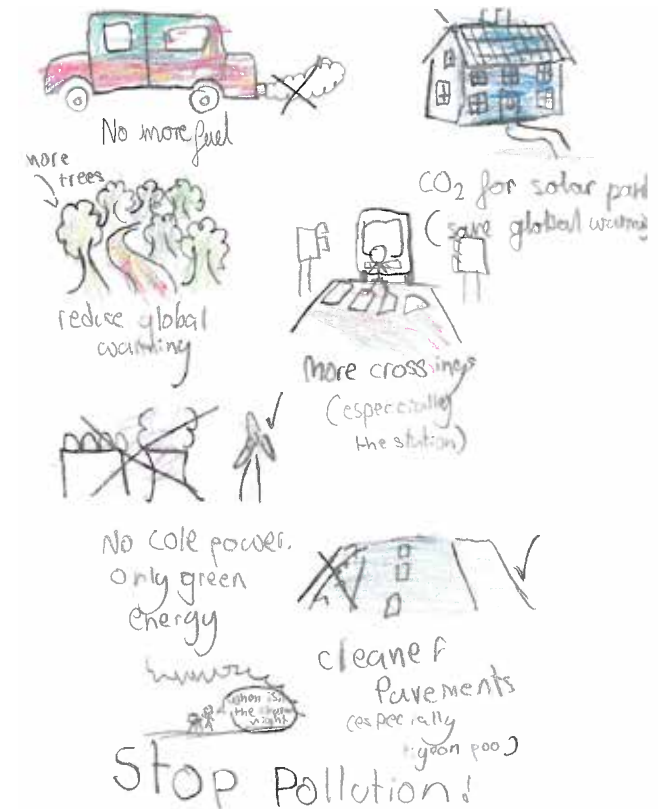 No more fuel
more
trees
CO2 for solar
(save global warming
reduce global
warming
More crossings
(especcially
the station)
No Cole power.
only green
energy
cleaner
Pavements
(especially
poo)
the
night
Stop Pollution!